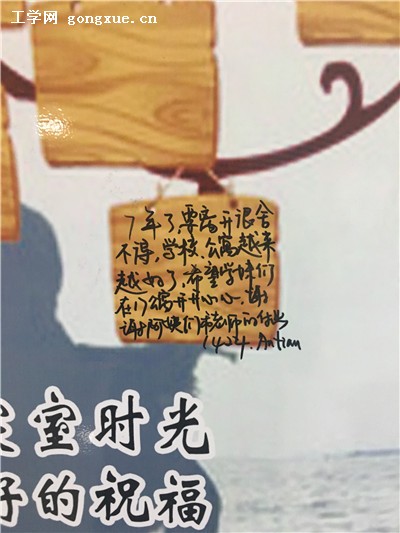 工学网 gongxue.cn
7年了,要离开很舍
不得,学校、公寓越来
越好了,希望学妹们
在17公寓开开心心、谢
谢阿姨们和老师的付出
1424. Antian
室时光
好的祝福